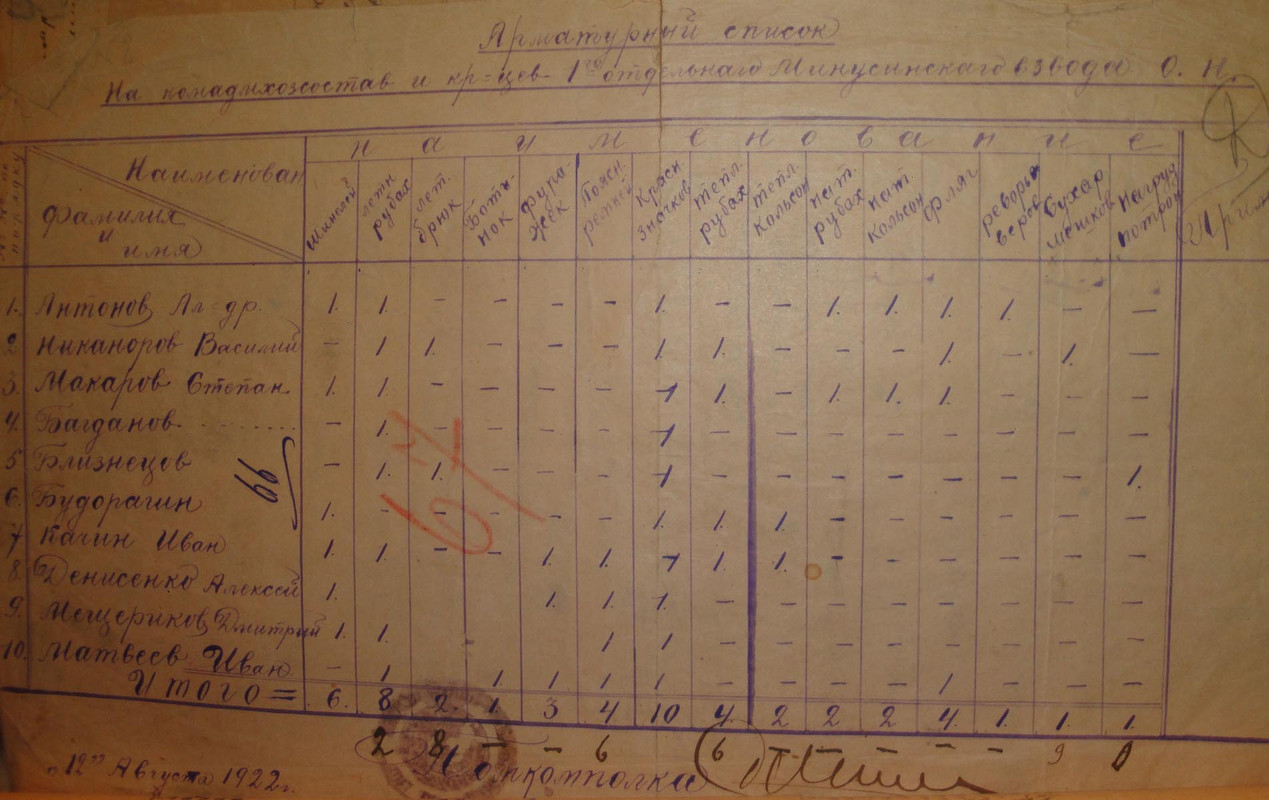 Арматурный список
На комадихозсостав и кр=цев 1го отдельнаго Минусинскаго взвода О. Н.
Наименован
фамилих и имя
наименование
шинелей летн рубах лет. брюк Боти-нок фура-жек Поясн. ремней Красн значков тепл. рубах тепл. кольсон нат. рубах нат. кольсон фляг револь-веров Сухар мешков Нагруд патрон
1. Антонов Ал=др. 1. 1. – – – – 1. – – 1. 1. 1. 1. – –
2 Никаноров Василий – 1 1. – – – 1 1. – – – 1. – 1. –
3. Макаров Степан. 1. 1. – – – – 1 1. – 1. 1. 1. – – –
4. Багданов – 1. – – – – 1 – – – – – – – –
5 Близнецов – 1. 1. – – – 1 – – – – – – – 1.
6. Будорагин 1. – – – – – 1. 1. 1. – – – – – –
7 Качин Иван 1. 1. – – 1. 1. 1 1. 1. – – – – – –
8. Денисенко Алексей 1. 1. 1. 1. – – – – – – – –
9. Мещериков Дмитрий 1. 1. 1 1. – – – – – – – –
10. Матвеев Иван – 1 1 1 1 1 – – – – 1 – – –
Итого = 6. 8 2. 1. 3 4 10 4. 2 2 2 4. 1. 1. 1.
66
67
2 8 – – 6 6 – – – – – – 9
"12" Августа 1922г.